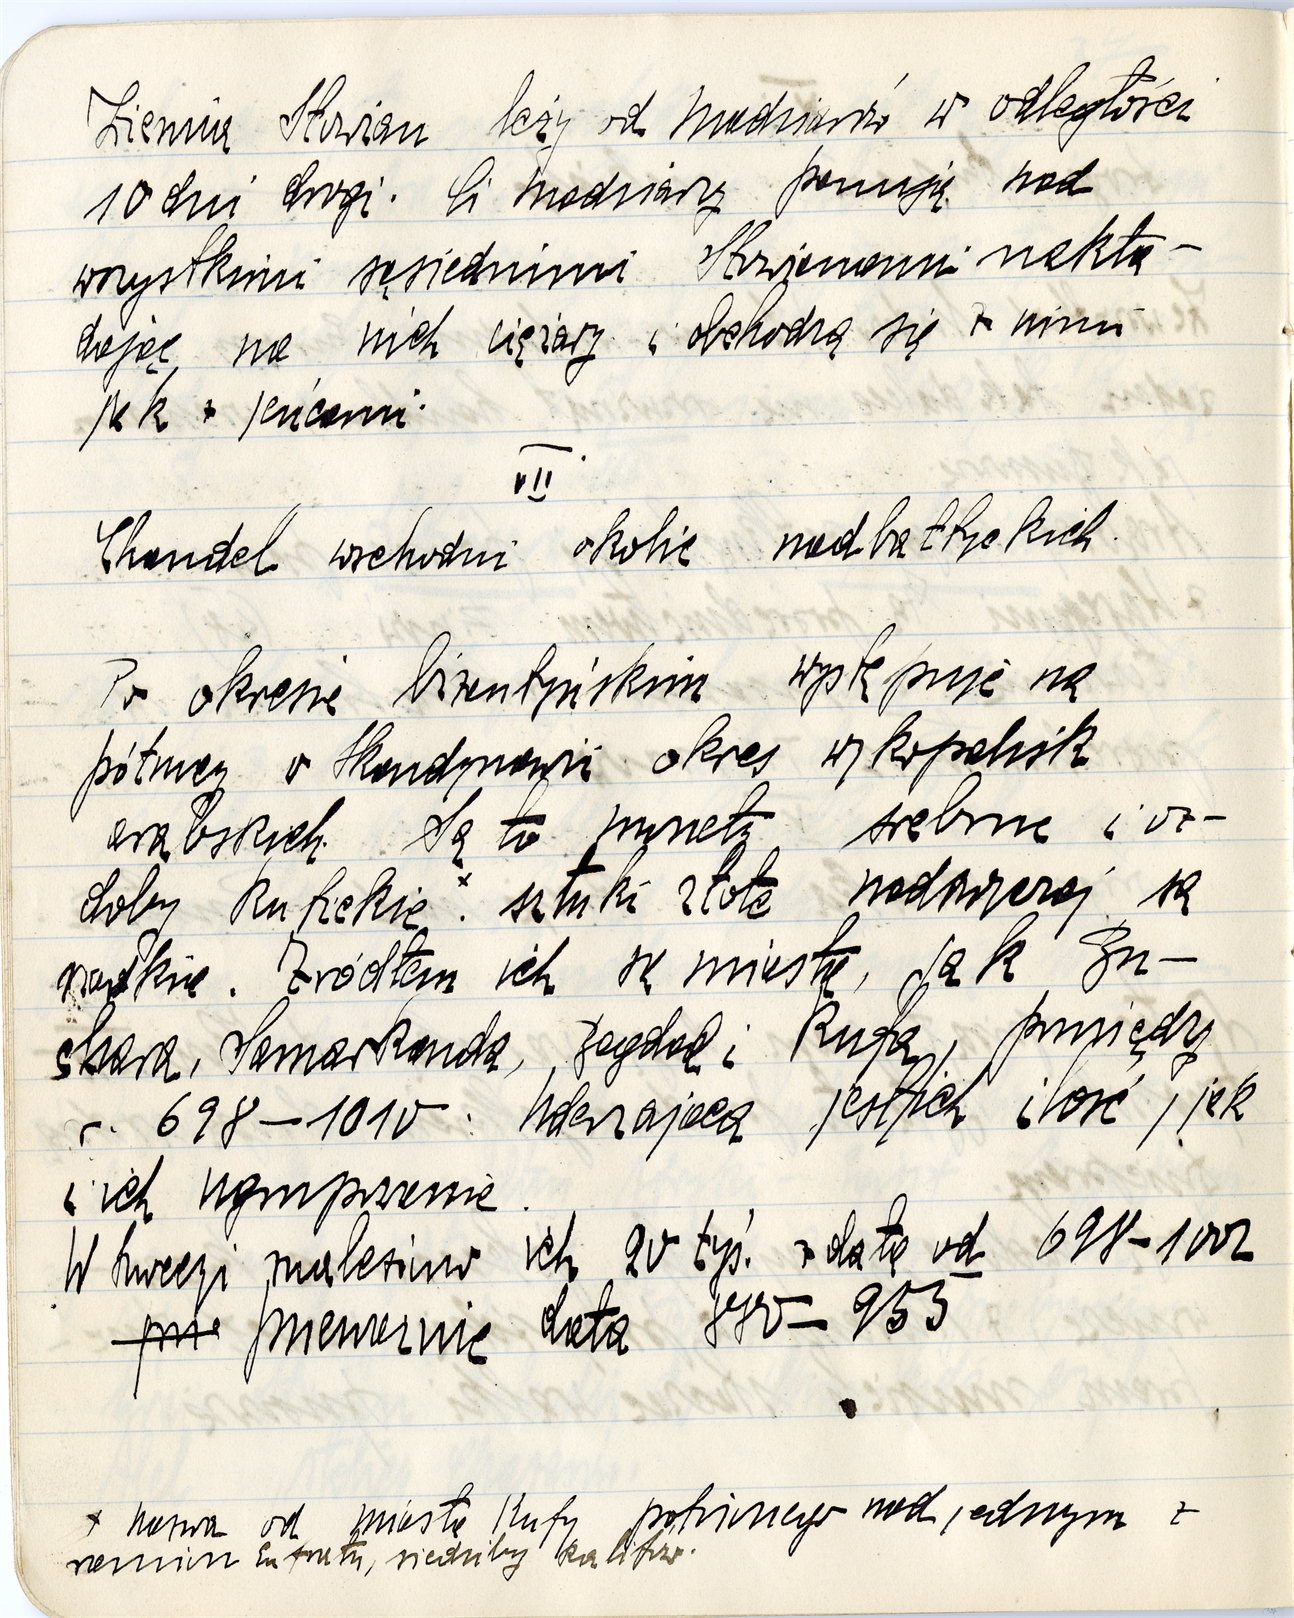 Ziemia Słowian leży od Madziarów w odległości
10 dni drogi. Ci Madziary panują nad
wszystkimi sąsiednimi Słowianami nakła-
dając na nich ciężary i obchodzą się z nimi
jak z jeńcami.
VII
Chandel wschodni okolic nadbałtyckich.
Po okresie bizantyńskim występuje na
północy w Skandynawii okres wykopalisk
arabskich. Są to monety srebrne i oz-
doby kufickie x. sztuki złote nadzwyczaj są
rzadkie. Źródłem ich są miasta, jak Bu-
chara, Samarkanda, Bagdad i Kufa, pomiędzy
r. 698–1010. Uderzająca jest ich ilość, jak
i ich ugrupowanie.
W Szwecji znaleziono ich 20 tyś. z datą od 698–1002
prze przeważnie data 880–955
x nazwa od miasta Kufy położonego nad jednym z
ramion Eufratu, siedziby kalifów.